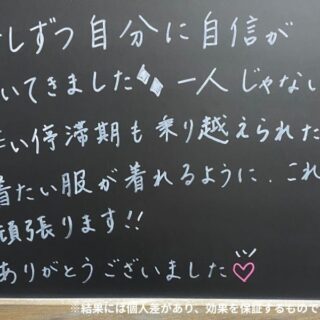 しずつ自分に自信が
いてきました 一人じゃない
い停滞期も乗り越えられた
着たい服が着れるように、これ
頑張ります!!
ありがとうございました♡
※結果には個人差があり、効果を保証するもので